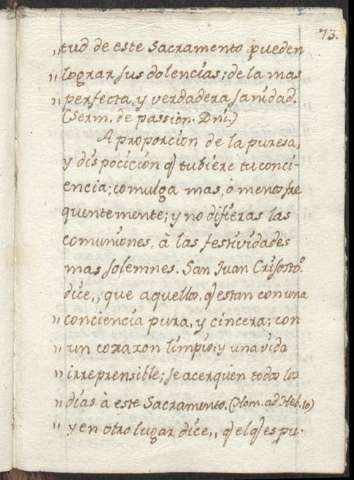 73.
„tud de este Sacramento pueden
„lograr sus dolencias; de la mas
„perfecta, y verdadera sanidad.
(Serm. de passion. Dni.)
A proporcion de la puresa,
y dispocicion q̃ tubiere tu conci-
encia; comulga mas, ò menos fre
quentemente; y no difieras las
comuniones, à las festividades
mas solemnes. San Juan Crisosto.
dice, „ que aquellos, q̃ estan con una
„conciencia pura, y cincera; con
„un corazon limpio; y una vida
„irreprensible; se acerquen todos los
„dias à este Sacramento. (Hom. ad Heb. 10)
„y en otro lugar dice, „ q̃ el q̃ es pu-